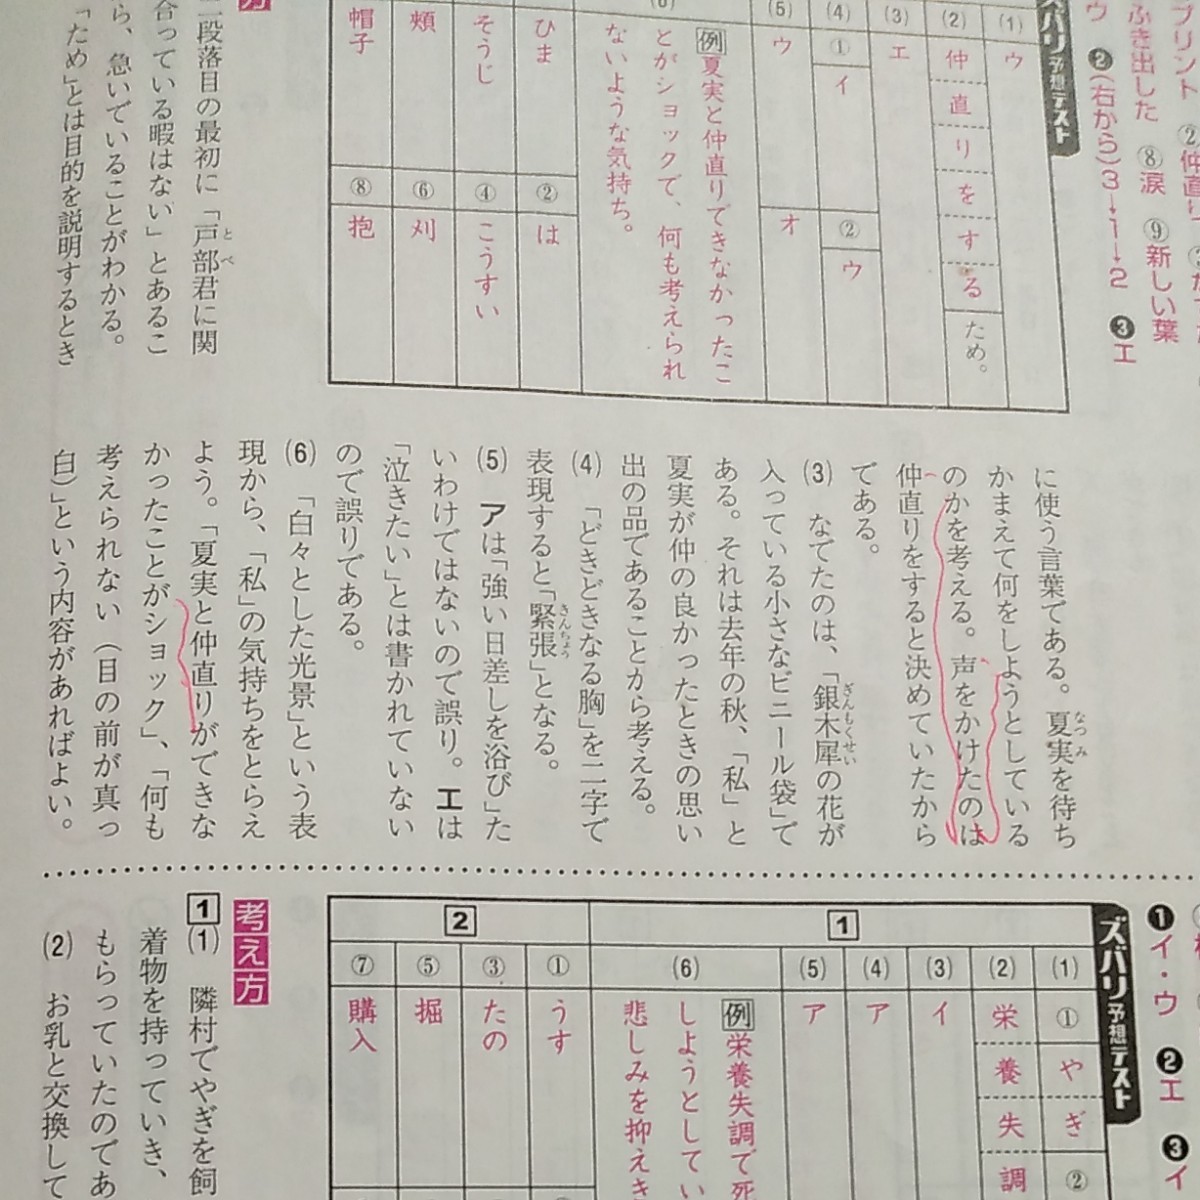 プリント
ふき出した ⑧涙 ⑨新しい葉
ウ ❷(右から)3→1→2 ❸エ
ズバリ予想テスト
(1) ウ
(2) 仲直りをする ため。
(3) エ
(4) ① イ ② ウ
(5) ウ オ
例 夏実と仲直りできなかったこ
とがショックで、何も考えられ
ないような気持ち。
ひま ② は
そうじ ④ こうすい
頬 ⑥ 刈
帽子 ⑧ 抱
方
二段落目の最初に「戸部君に関
とべ
合っている暇はない」とあるこ
ら、急いでいることがわかる。
「ため」とは目的を説明するとき
に使う言葉である。夏実を待ち
なつみ
かまえて何をしようとしている
のかを考える。声をかけたのは
仲直りをすると決めていたから
である。
(3) なでたのは、「銀木犀の花が
ぎんもくせい
入っている小さなビニール袋」で
ある。それは去年の秋、「私」と
夏実が仲の良かったときの思い
出の品であることから考える。
(4) 「どきどきなる胸」を二字で
表現すると「緊張」となる。
きんちょう
(5) アは「強い日差しを浴び」た
いわけではないので誤り。エは
「泣きたい」とは書かれていない
ので誤りである。
(6) 「白々とした光景」という表
現から、「私」の気持ちをとらえ
よう。「夏実と仲直りができな
かったことがショック」、「何も
考えられない(目の前が真っ
白)」という内容があればよい。
❶イ・ウ ❷エ ❸イ
ズバリ予想テスト
1
(1) ① やぎ ②
(2) 栄養失調
(3) イ
(4) ア
(5) ア
(6) 例 栄養失調で死
しようとしてい
悲しみを抑えき
2
① うす
③ たの
⑤ 掘
⑦ 購入
考え方
1 (1) 隣村でやぎを飼
着物を持っていき、
もらっていたのであ
(2) お乳と交換して